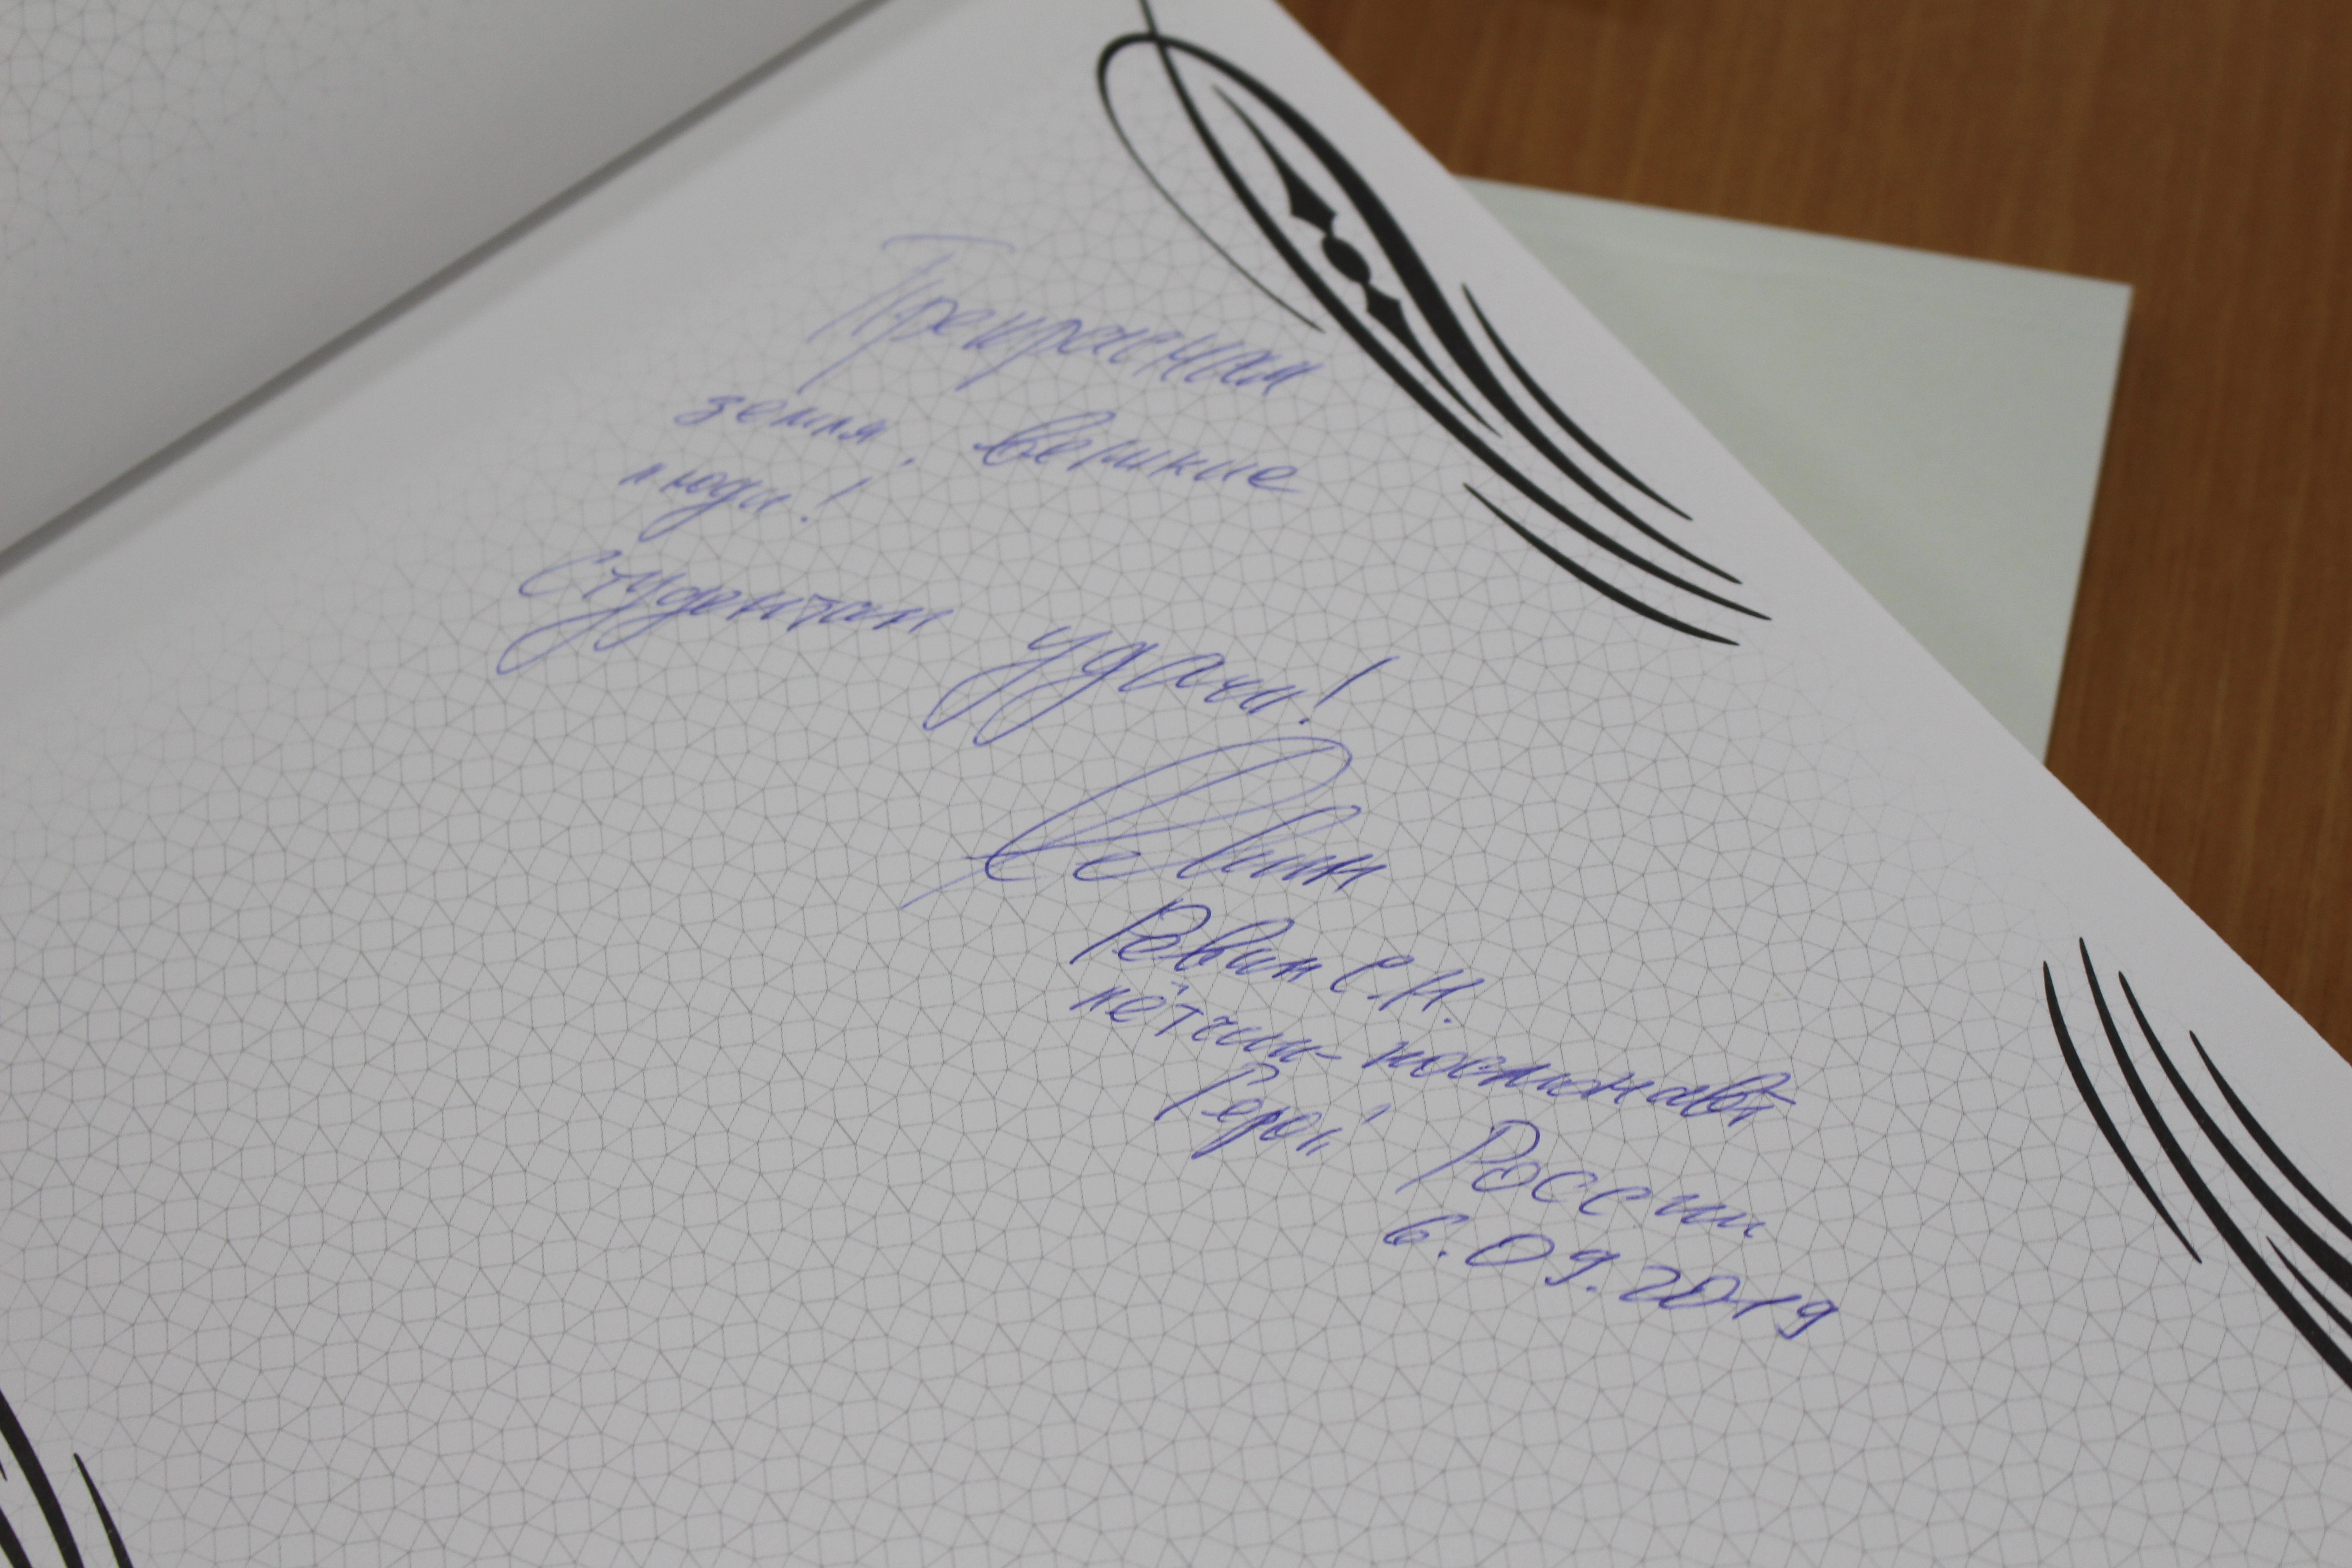 Прекрасная
земля, великие
люди!
Студентам удачи!
Ревин
Ревин С.Н.
лётчик-космонавт
Герой России
6.09.2019